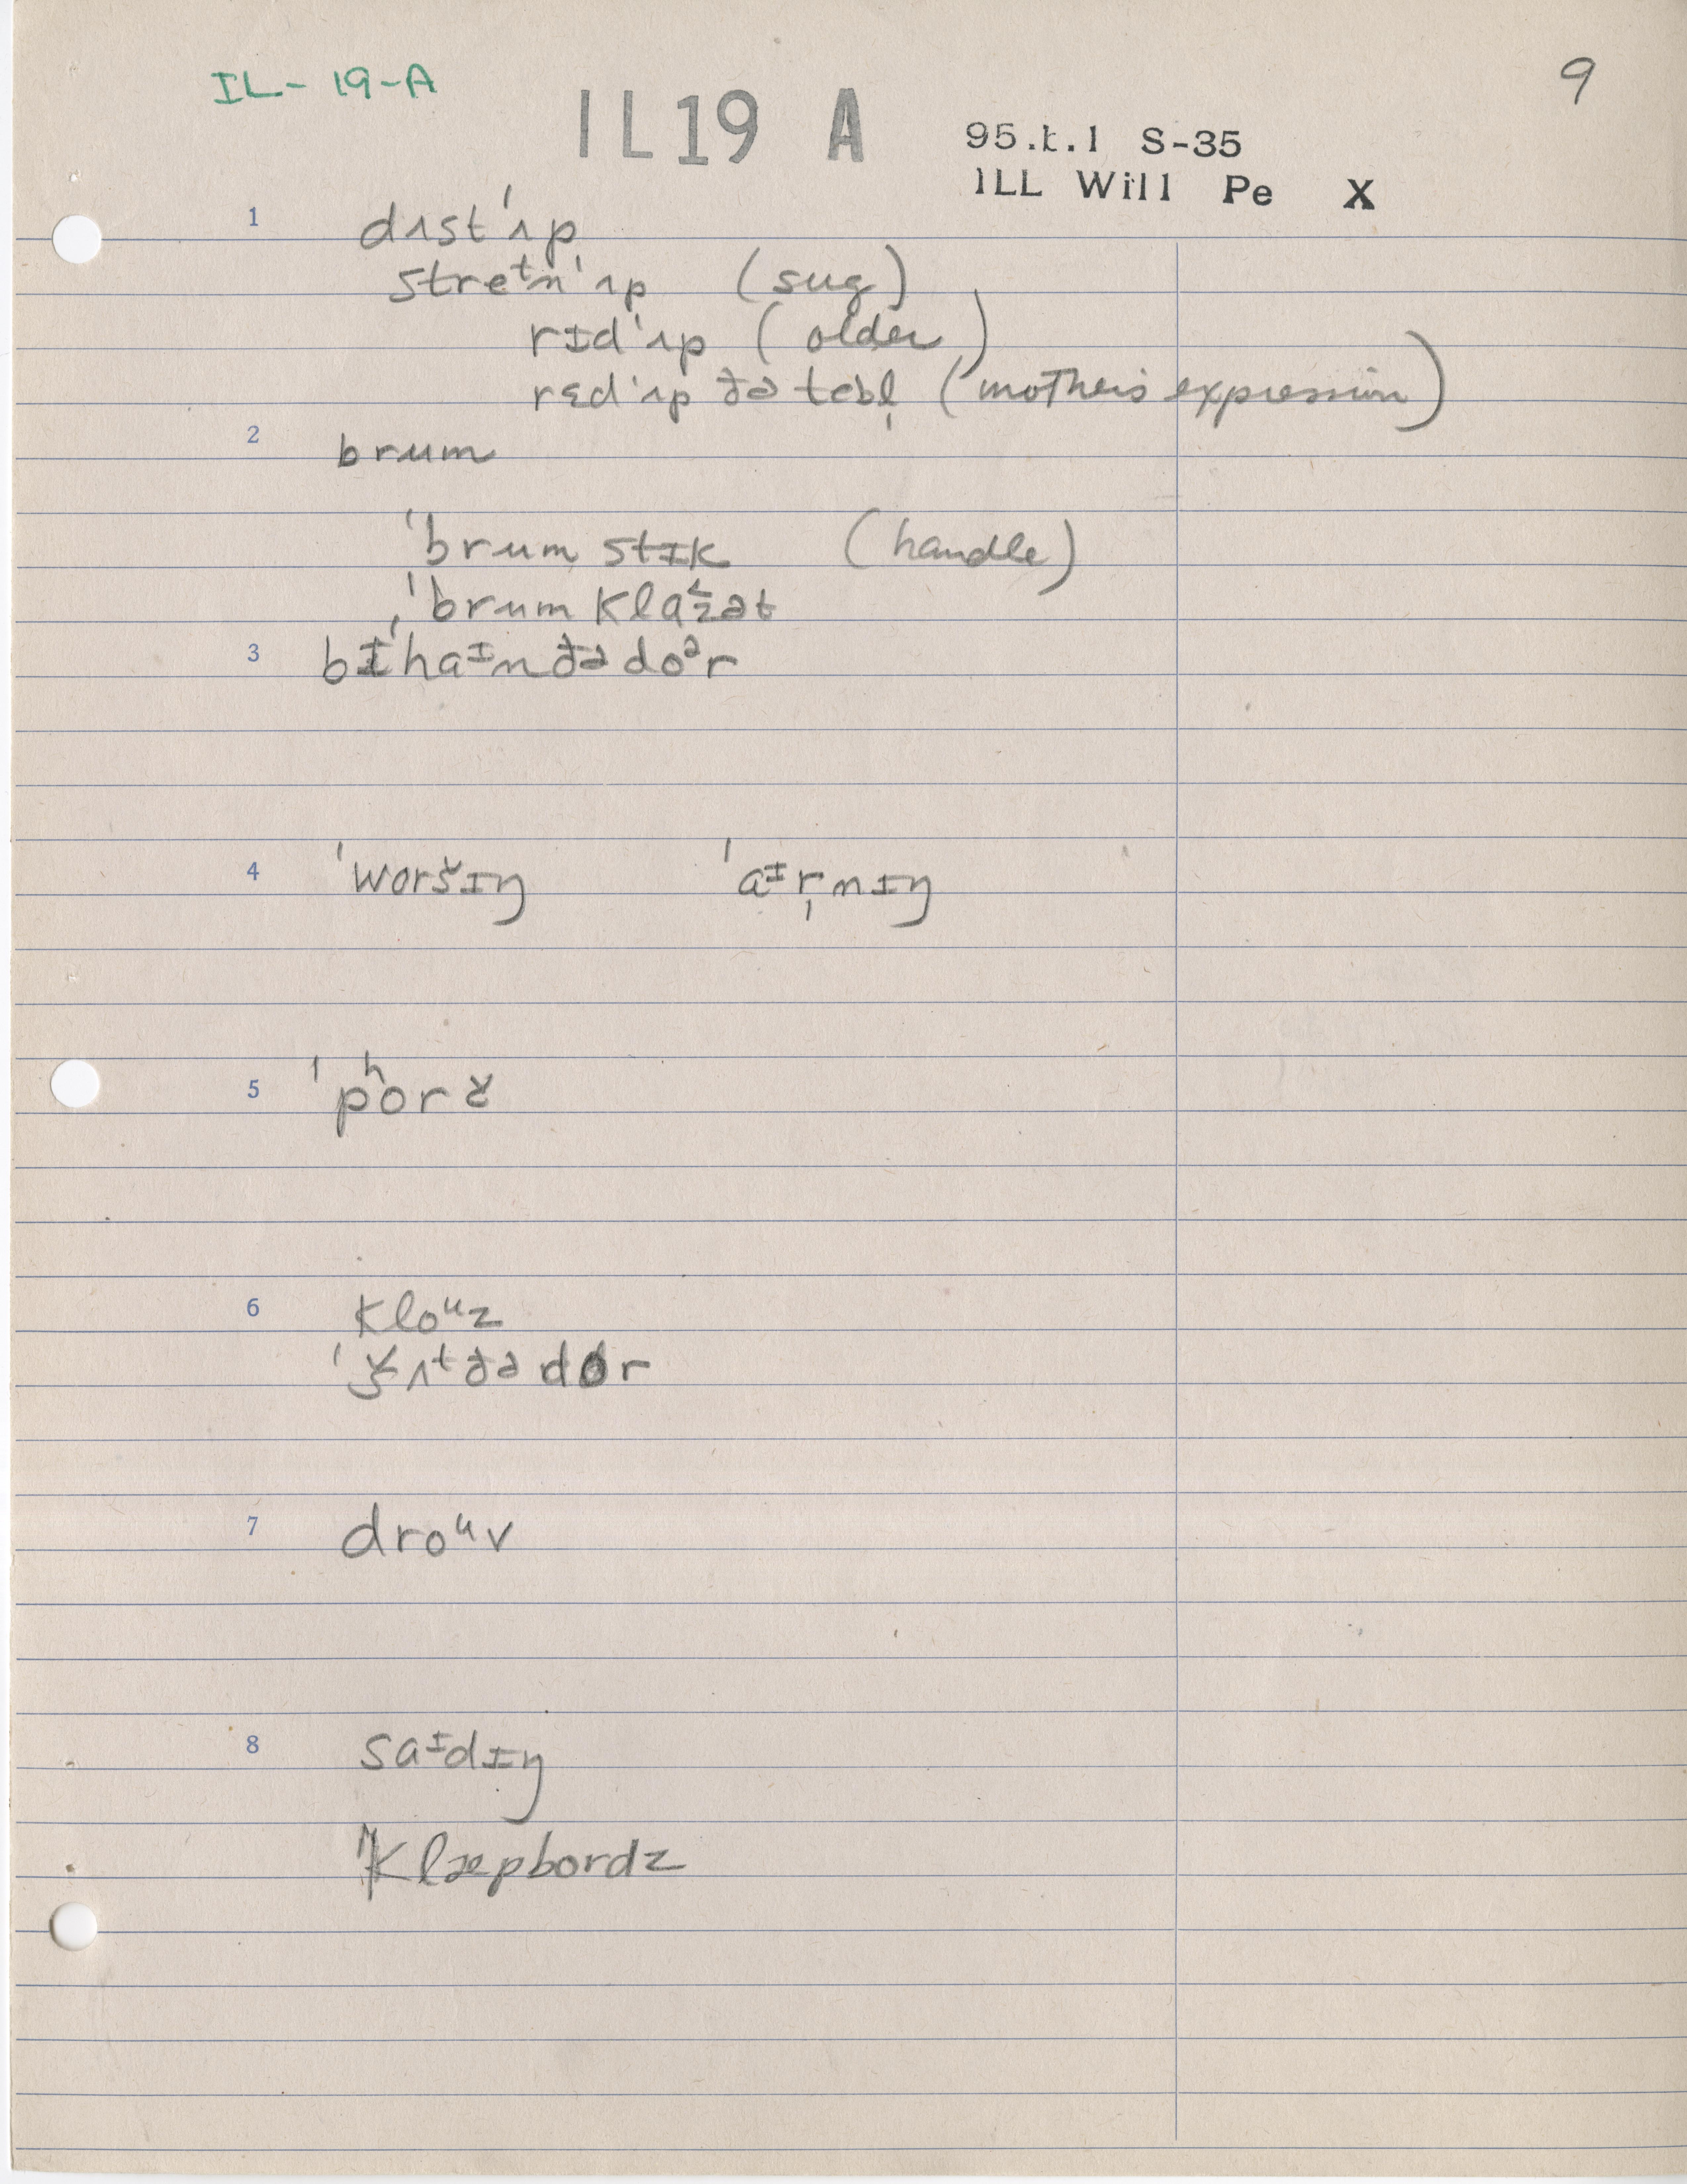 IL-19-A
9
IL19 A
95.k.1 S-35
ILL Will Pe X
1 dʌst ˈʌp
streᵗn ˈʌp (sug)
rɪd ˈʌp (older)
rɛd ˈʌp ðə tebl̩ (mother's expression)
2 brum
ˈbrum stɪk (handle)
ˈbrum klɑzət
3 bɪˌˈhaᶦn ðə doᵊr
4 ˈworšɪŋ ˈaᶦr̩nɪŋ
5 ˈpʰorč
6 kloᵘz
ˈšʌᵗ ðə dor
7 droᵘv
8 saᶦdɪŋ
ˈklæpbordz